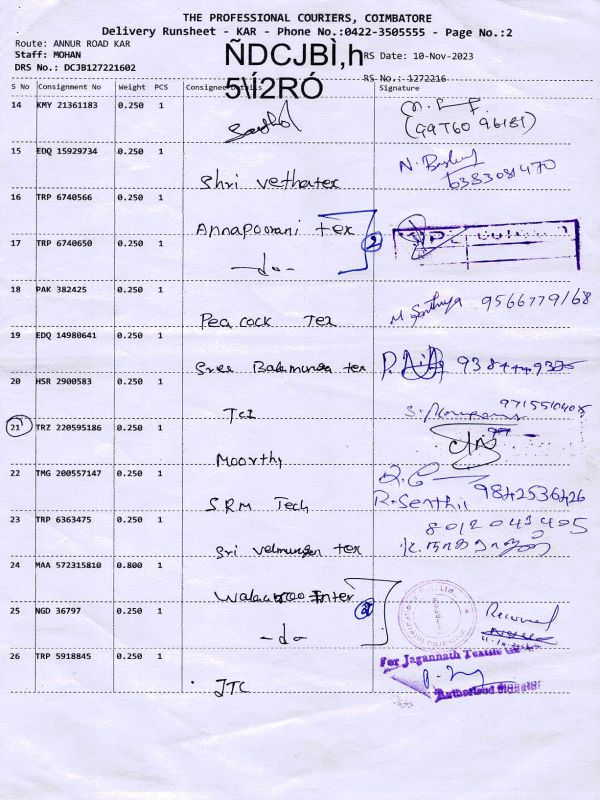 THE PROFESSIONAL COURIERS, COIMBATORE
Delivery Runsheet - KAR - Phone No.:0422-3505555 - Page No.:2
Route: ANNUR ROAD KAR
Staff: MOHAN
DRS No.: DCJB127221602
ÑDCJBÌ,h
5\Í2RÓ
RS Date: 10-Nov-2023
RS No.: 1272216
S No Consignment No Weight PCS Consignee Details Signature
14 KMY 21361183 0.250 1
15 EDQ 15929734 0.250 1
Shri vethatex 6383081470
16 TRP 6740566 0.250 1
Annapoorani tex 2
17 TRP 6740650 0.250 1
-do-
18 PAK 382425 0.250 1
Peacock Tex 9566779168
19 EDQ 14980641 0.250 1
Sree Balamuruga tex
20 HSR 2900583 0.250 1
TCI
21 TRZ 220595186 0.250 1
Moorthy
22 TMG 200557147 0.250 1
SRM Tech R. Senthil 9842536426
23 TRP 6363475 0.250 1
Sri velmurugan tex 8012041405
24 MAA 572315810 0.800 1
Inter 2
25 NGD 36797 0.250 1
-do- Received
26 TRP 5918845 0.250 1
For Jagannath Textile
JTC
Authorised Signatory